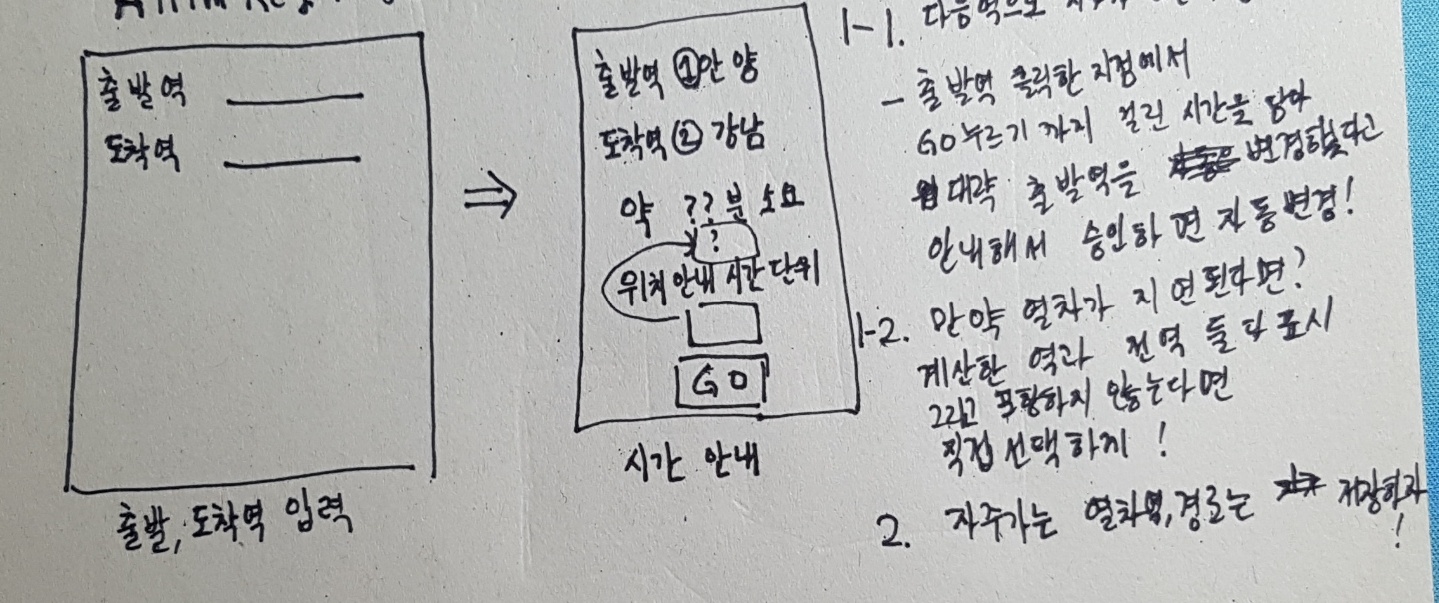 출발역
도착역
출발, 도착역 입력
출발역 ① 안양
도착역 ② 강남
약 ??분 소요
?
위치 안내 시간 단위
GO
시간 안내
1-1. 다음역으로
- 출발역 클릭한 지점에서
GO누르기 까지 걸린 시간을 담아
대략 출발역을 변경했다고
안내해서 승인하면 자동변경!
1-2. 만약 열차가 지연된다면?
계산한 역과 전역 둘 다 표시
그리고 포함하지 않는다면
직접 선택하지!
2. 자주가는 열차역, 경로는 저장하자!